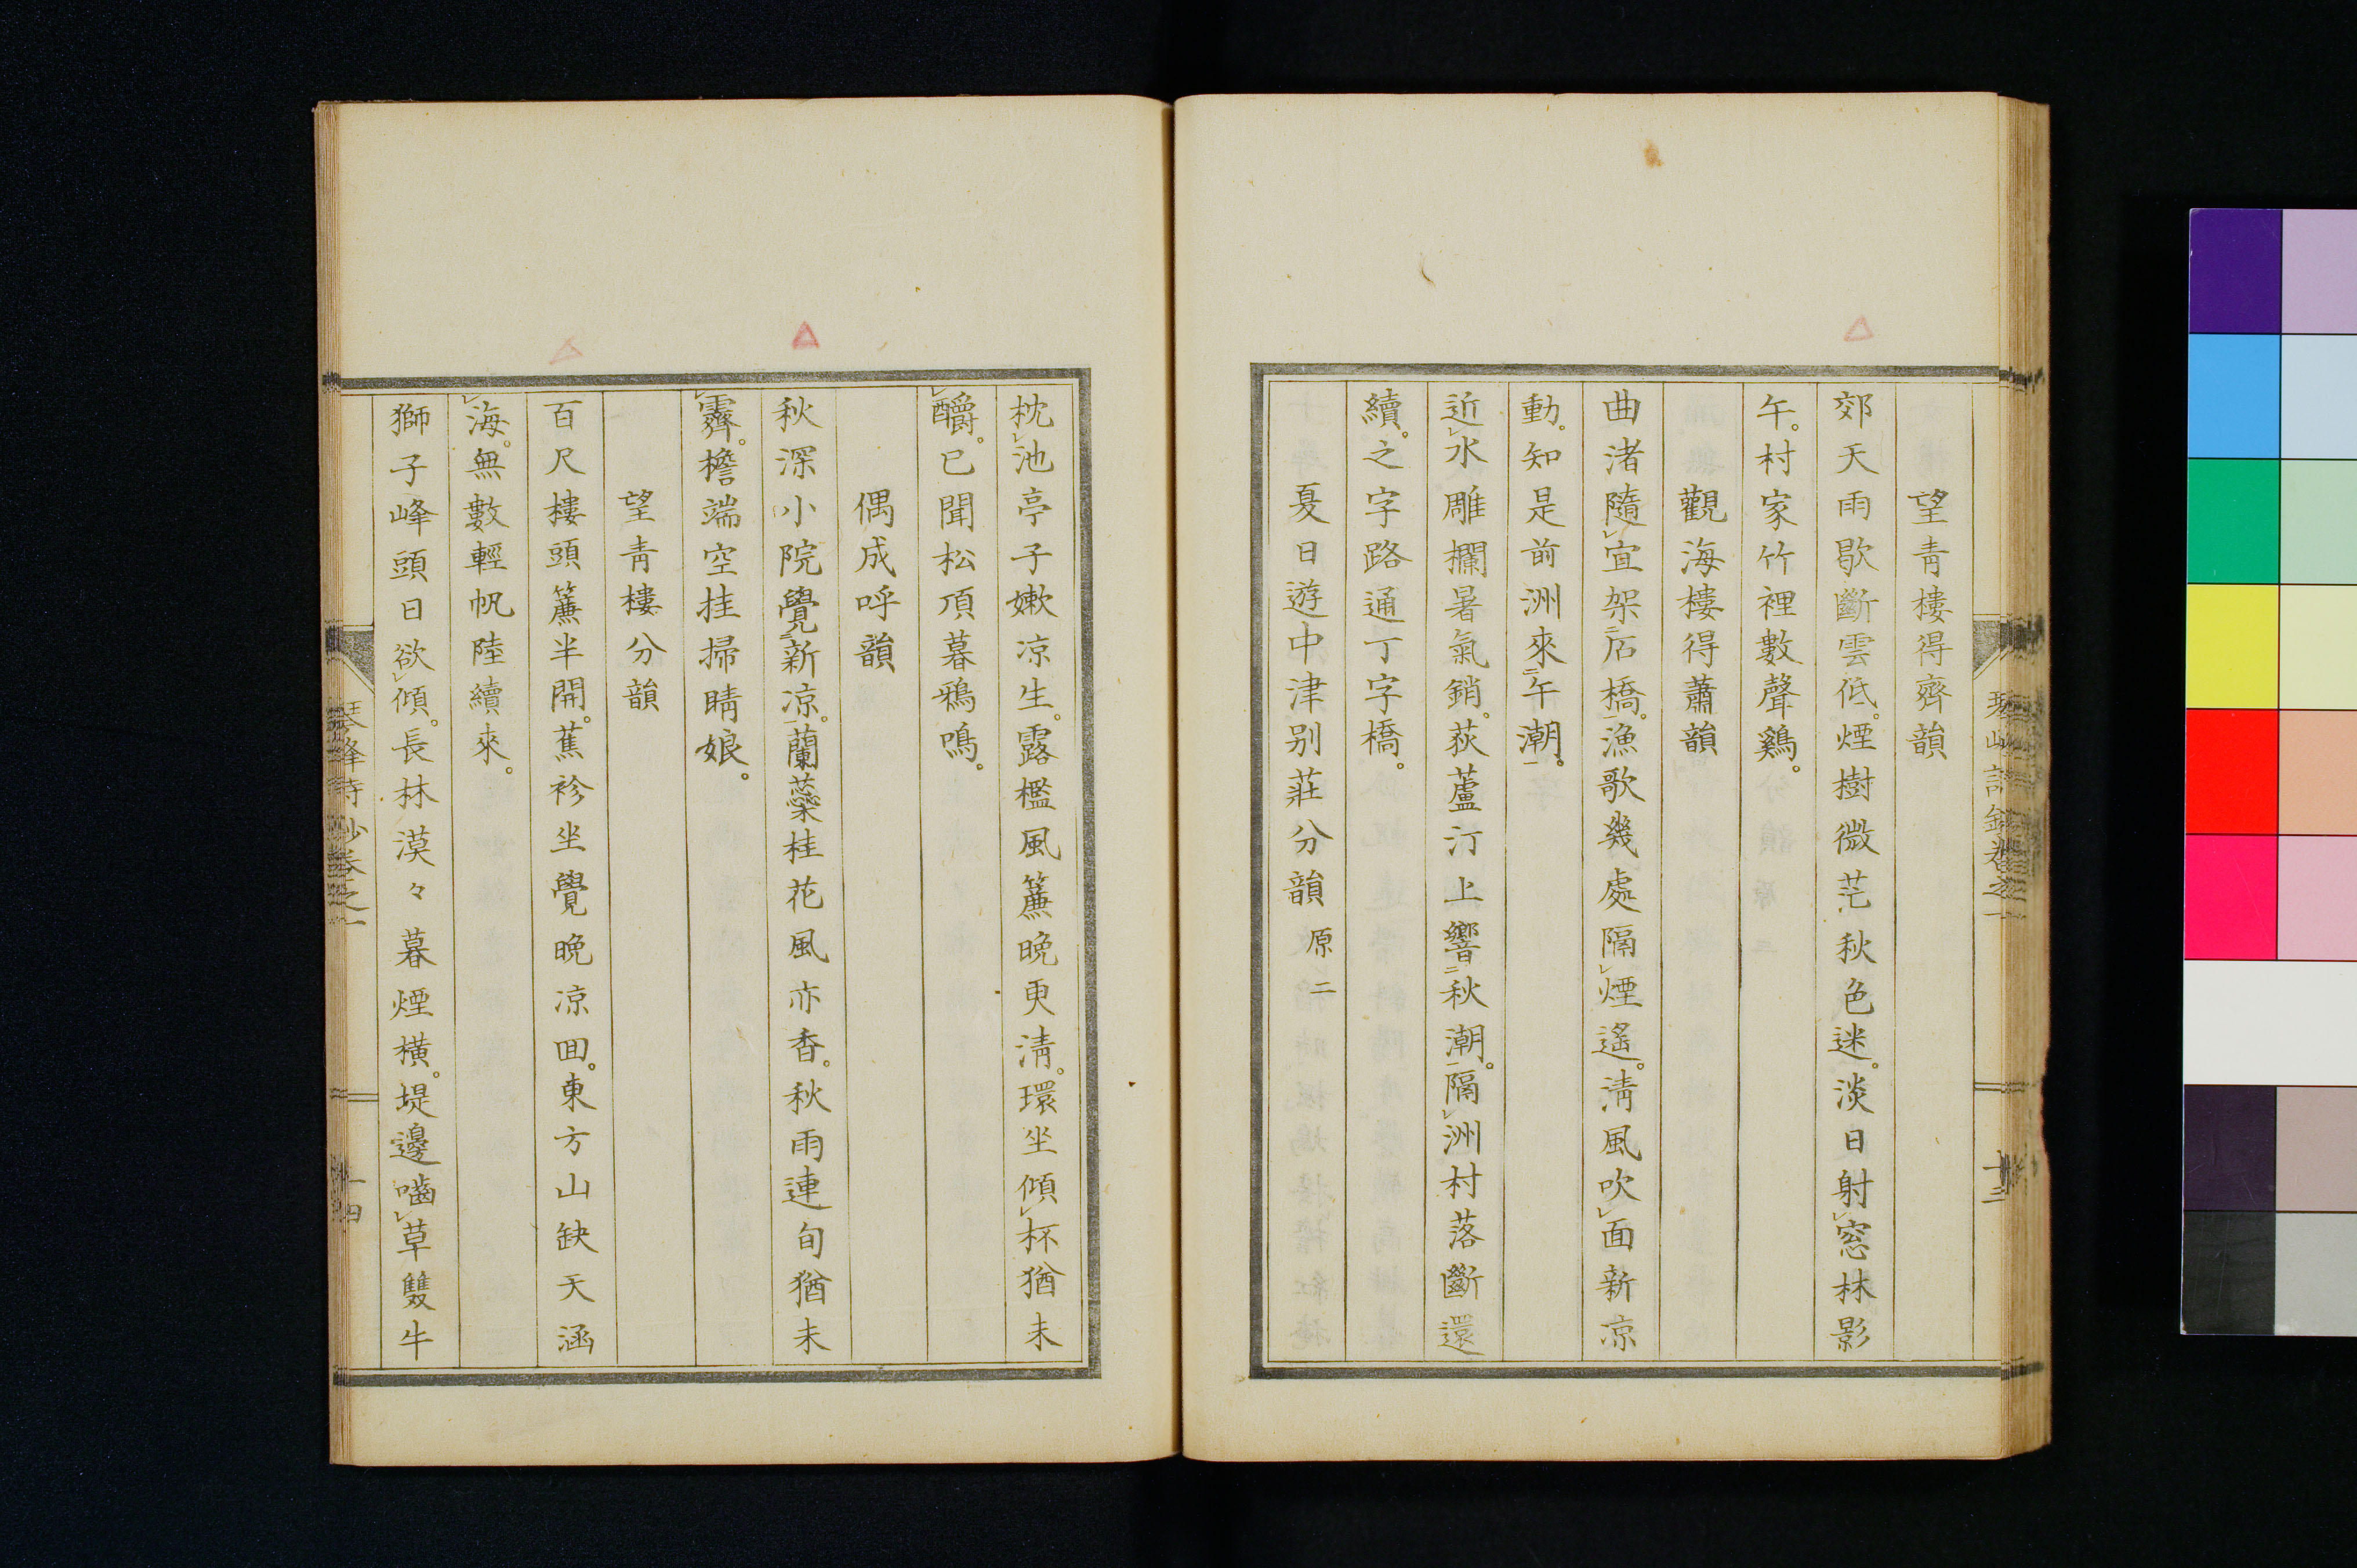 望青樓得齊韻
郊天雨歇斷雲低。煙樹微茫秋色迷。淡日射窓林影
午。村家竹裡數聲鷄。
觀海樓得蕭韻
曲渚隨宜架石橋。漁歌幾處隔煙遙。淸風吹面新凉
動。知是前洲來午潮。
近水雕欄暑氣銷。荻蘆汀上響秋潮。隔洲村落斷還
續。之字路通丁字橋。
夏日遊中津別莊分韻 原二
枕池亭子嫩凉生。露檻風簾晩更淸。環坐傾杯猶未
釂。已聞松頂暮鴉鳴。
偶成呼韻
秋深小院覺新凉。蘭蘂桂花風亦香。秋雨連旬猶未
霽。檐端空挂掃晴娘。
望青樓分韻
百尺樓頭簾半開。蕉衫坐覺晩凉回。東方山缺天涵
海。無數輕帆陸續來。
獅子峰頭日欲傾。長林漠々暮煙橫。堤邊嚙草雙牛
十四